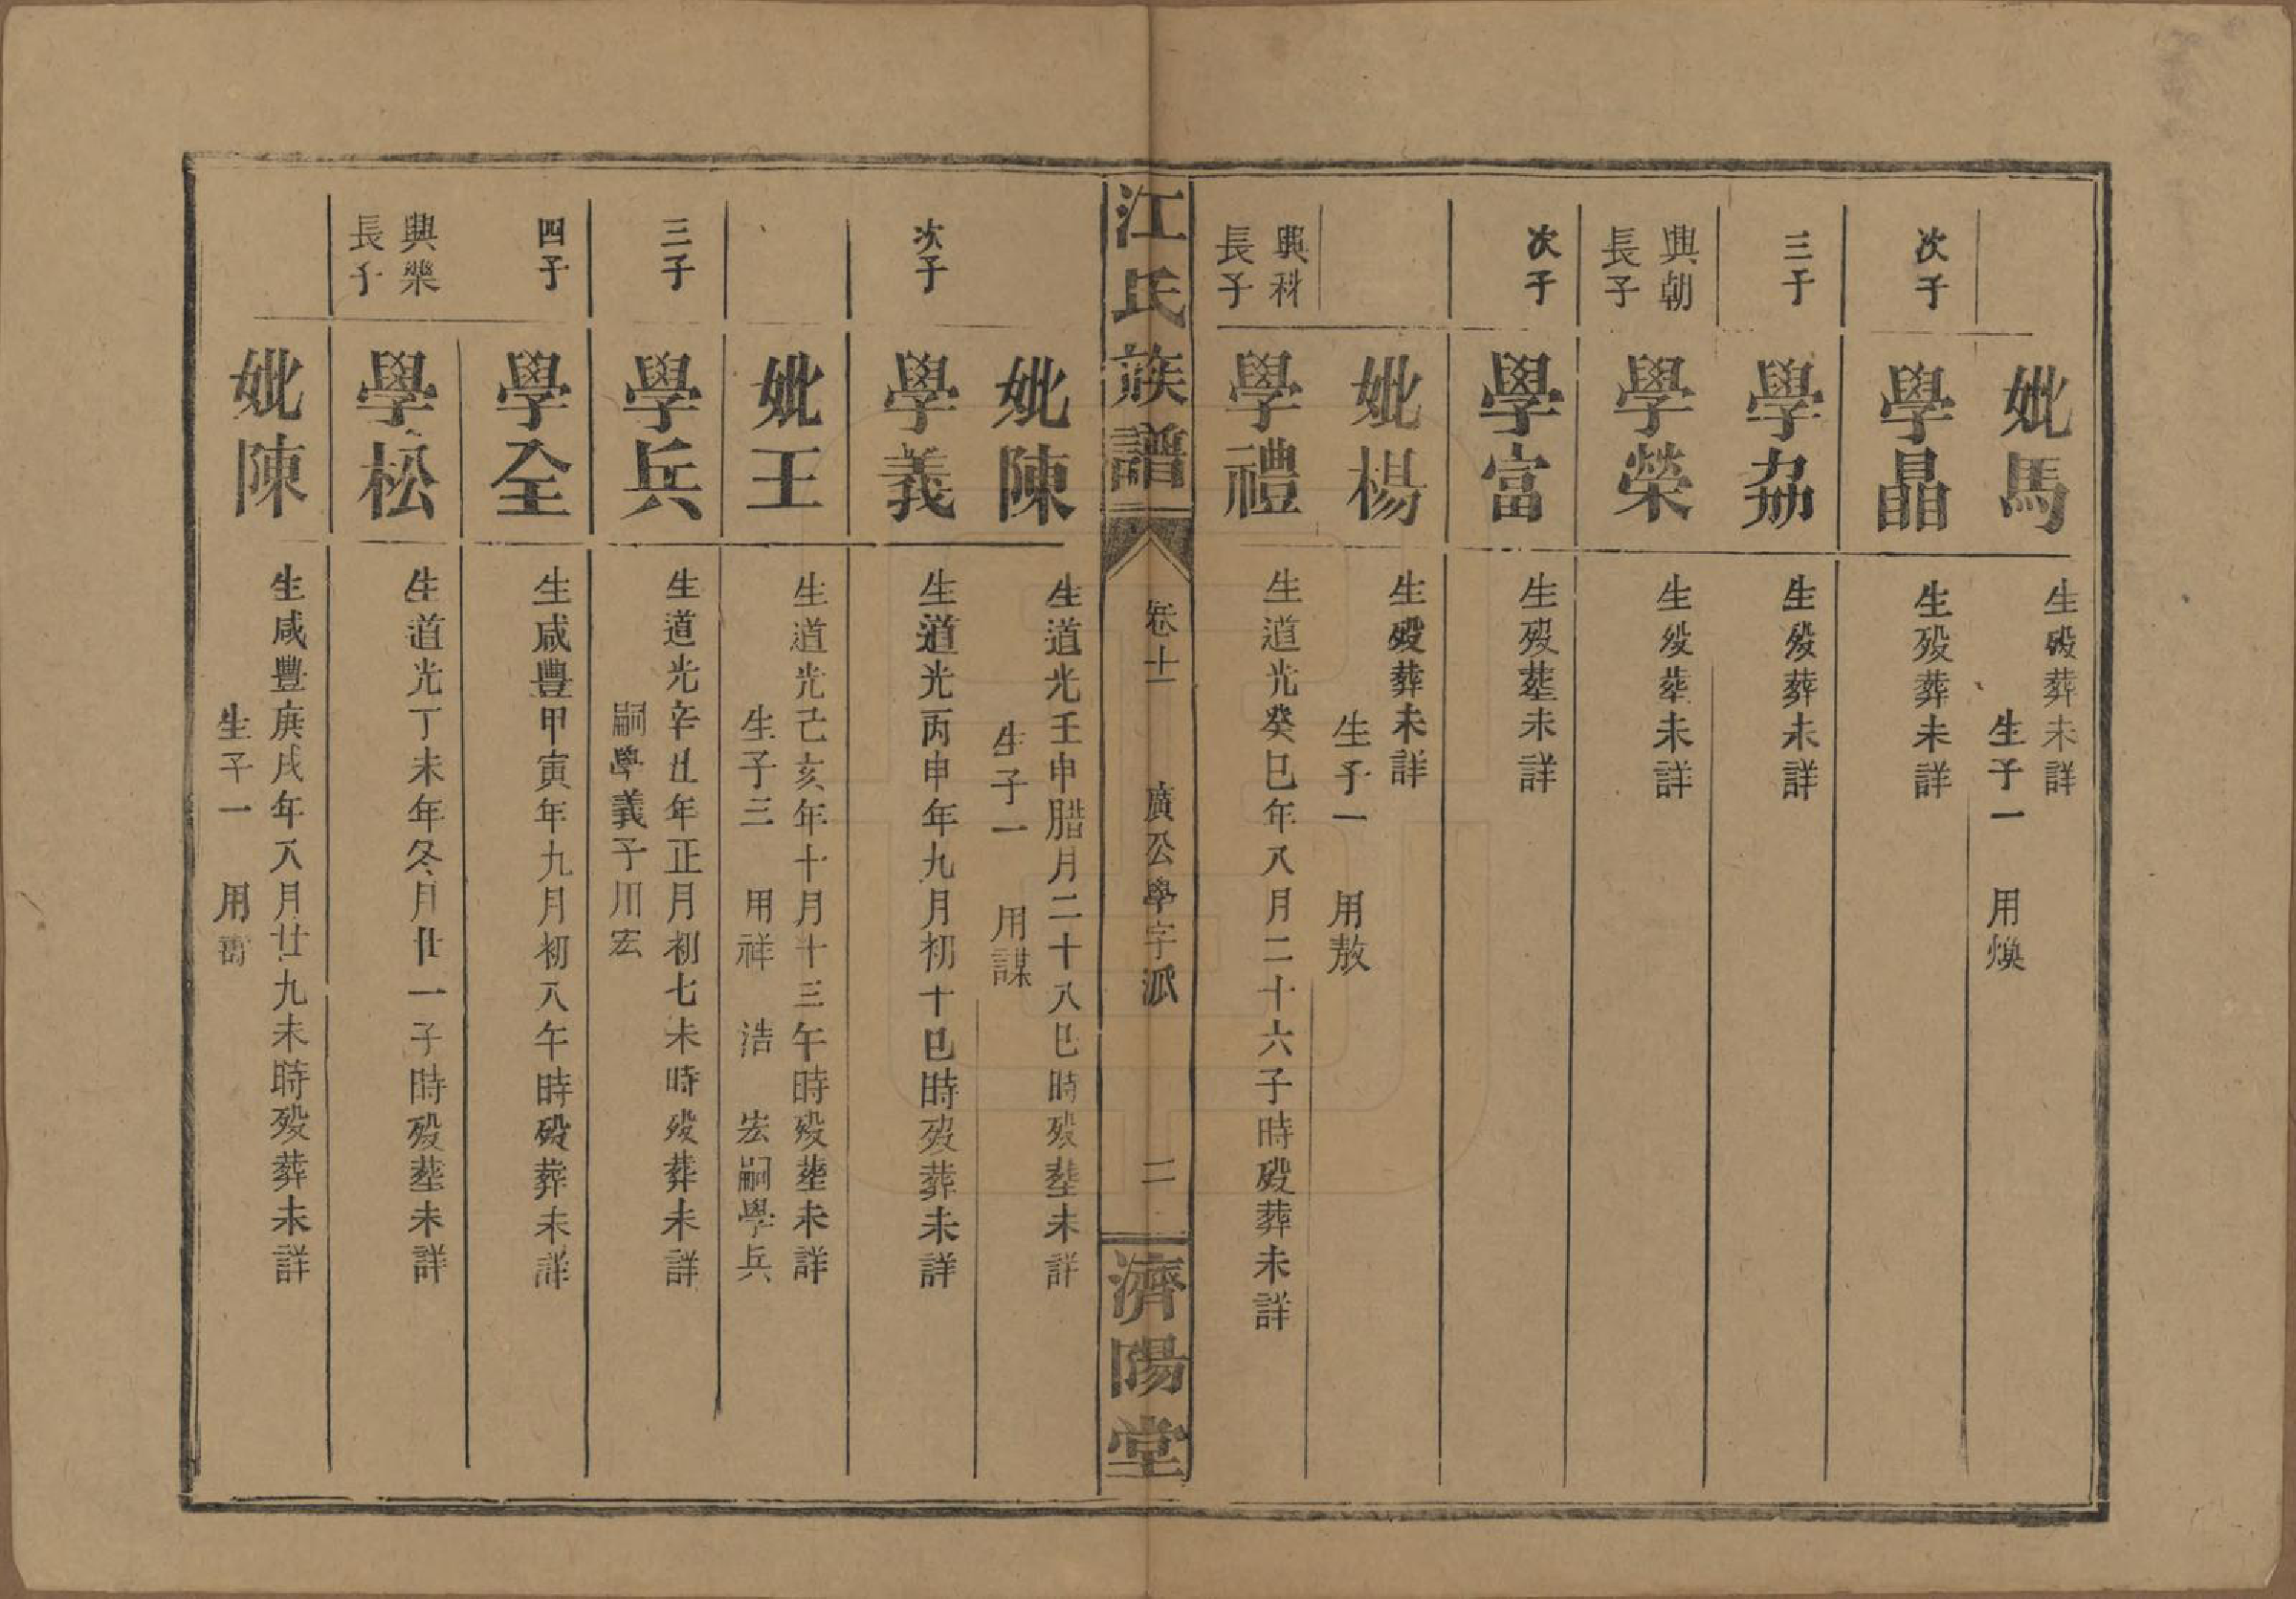 妣馬
生歿葬未詳
生子一　用煥
次子
學晶
生歿葬未詳
三子
學劦
生歿葬未詳
興朝
長子
學榮
生歿塟未詳
次子
學富
生歿塟未詳
妣楊
生歿葬未詳
生子一　用敖
興科
長子
學禮
生道光癸巳年八月二十六子時歿葬未詳
江氏族譜
卷十一　廣公學字派　二
濟陽堂
妣陳
生道光壬申腊月二十八巳時歿塟未詳
生子一　用謀
次子
學義
生道光丙申年九月初十巳時歿葬未詳
妣王
生道光己亥年十月十三午時歿塟未詳
生子三　用祥　浩　宏嗣學兵
三子
學兵
生道光辛丑年正月初七未時歿葬未詳
嗣學義子用宏
四子
學全
生咸豐甲寅年九月初八午時歿葬未詳
興樂
長子
學松
生道光丁未年冬月廿一子時歿塟未詳
妣陳
生咸豐庚戌年八月廿九未時歿葬未詳
生子一　用